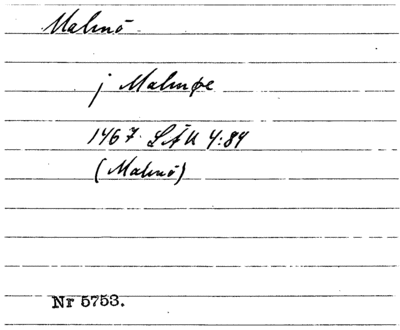 Malmö
j Malmøe
1467 LÄU 4:84
(Malmö)
Nr 5753.